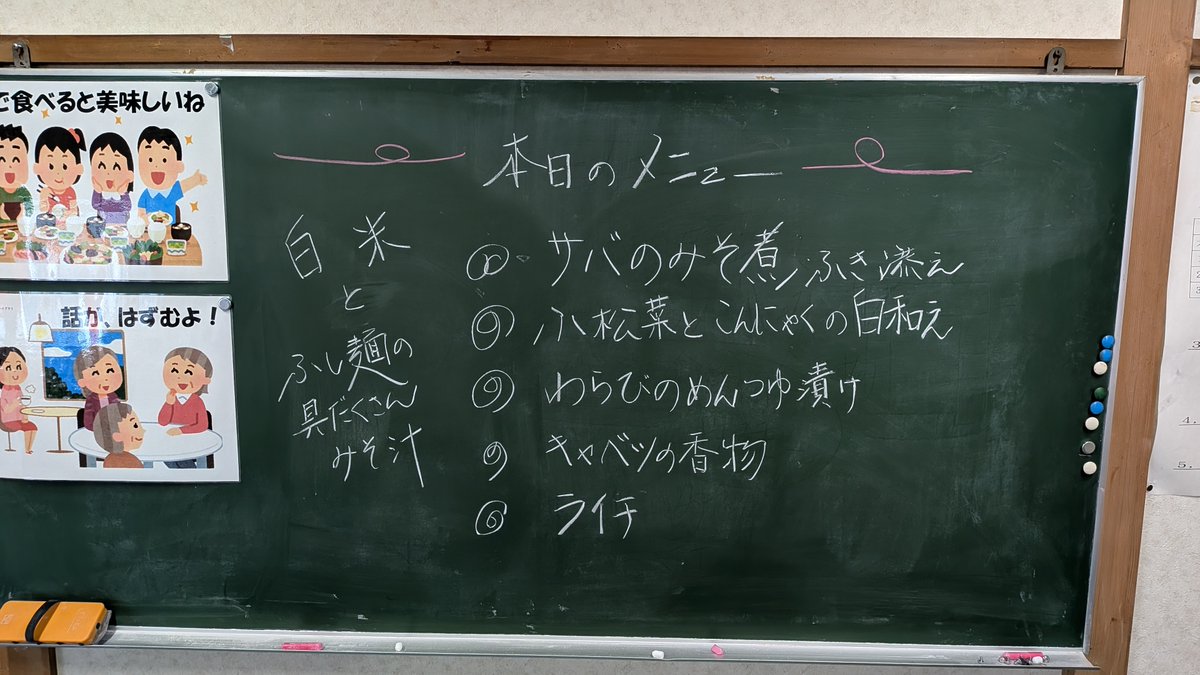 で食べると美味しいね
話が、はずむよ！
本日のメニュー
白米
と
ふし麺の
具だくさん
みそ汁
サバのみそ煮 ふき添え
小松菜とこんにゃくの白和え
わらびのめんつゆ漬け
キャベツの香物
ライチ
3.
4.
5.